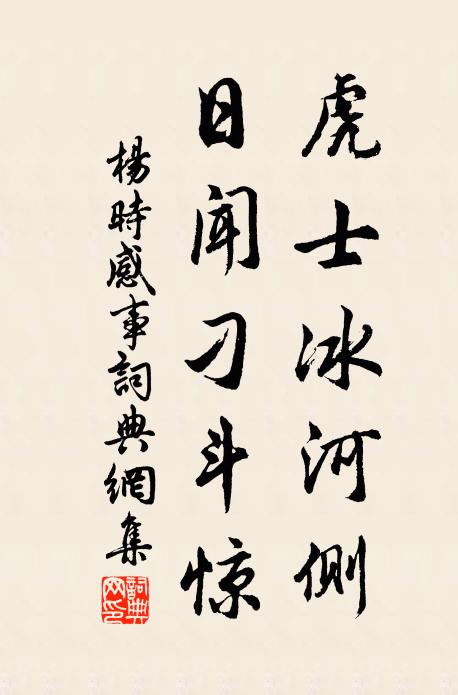 虎士冰河側
日闻刁斗惊
楊時感事詞典網集
詞典网印